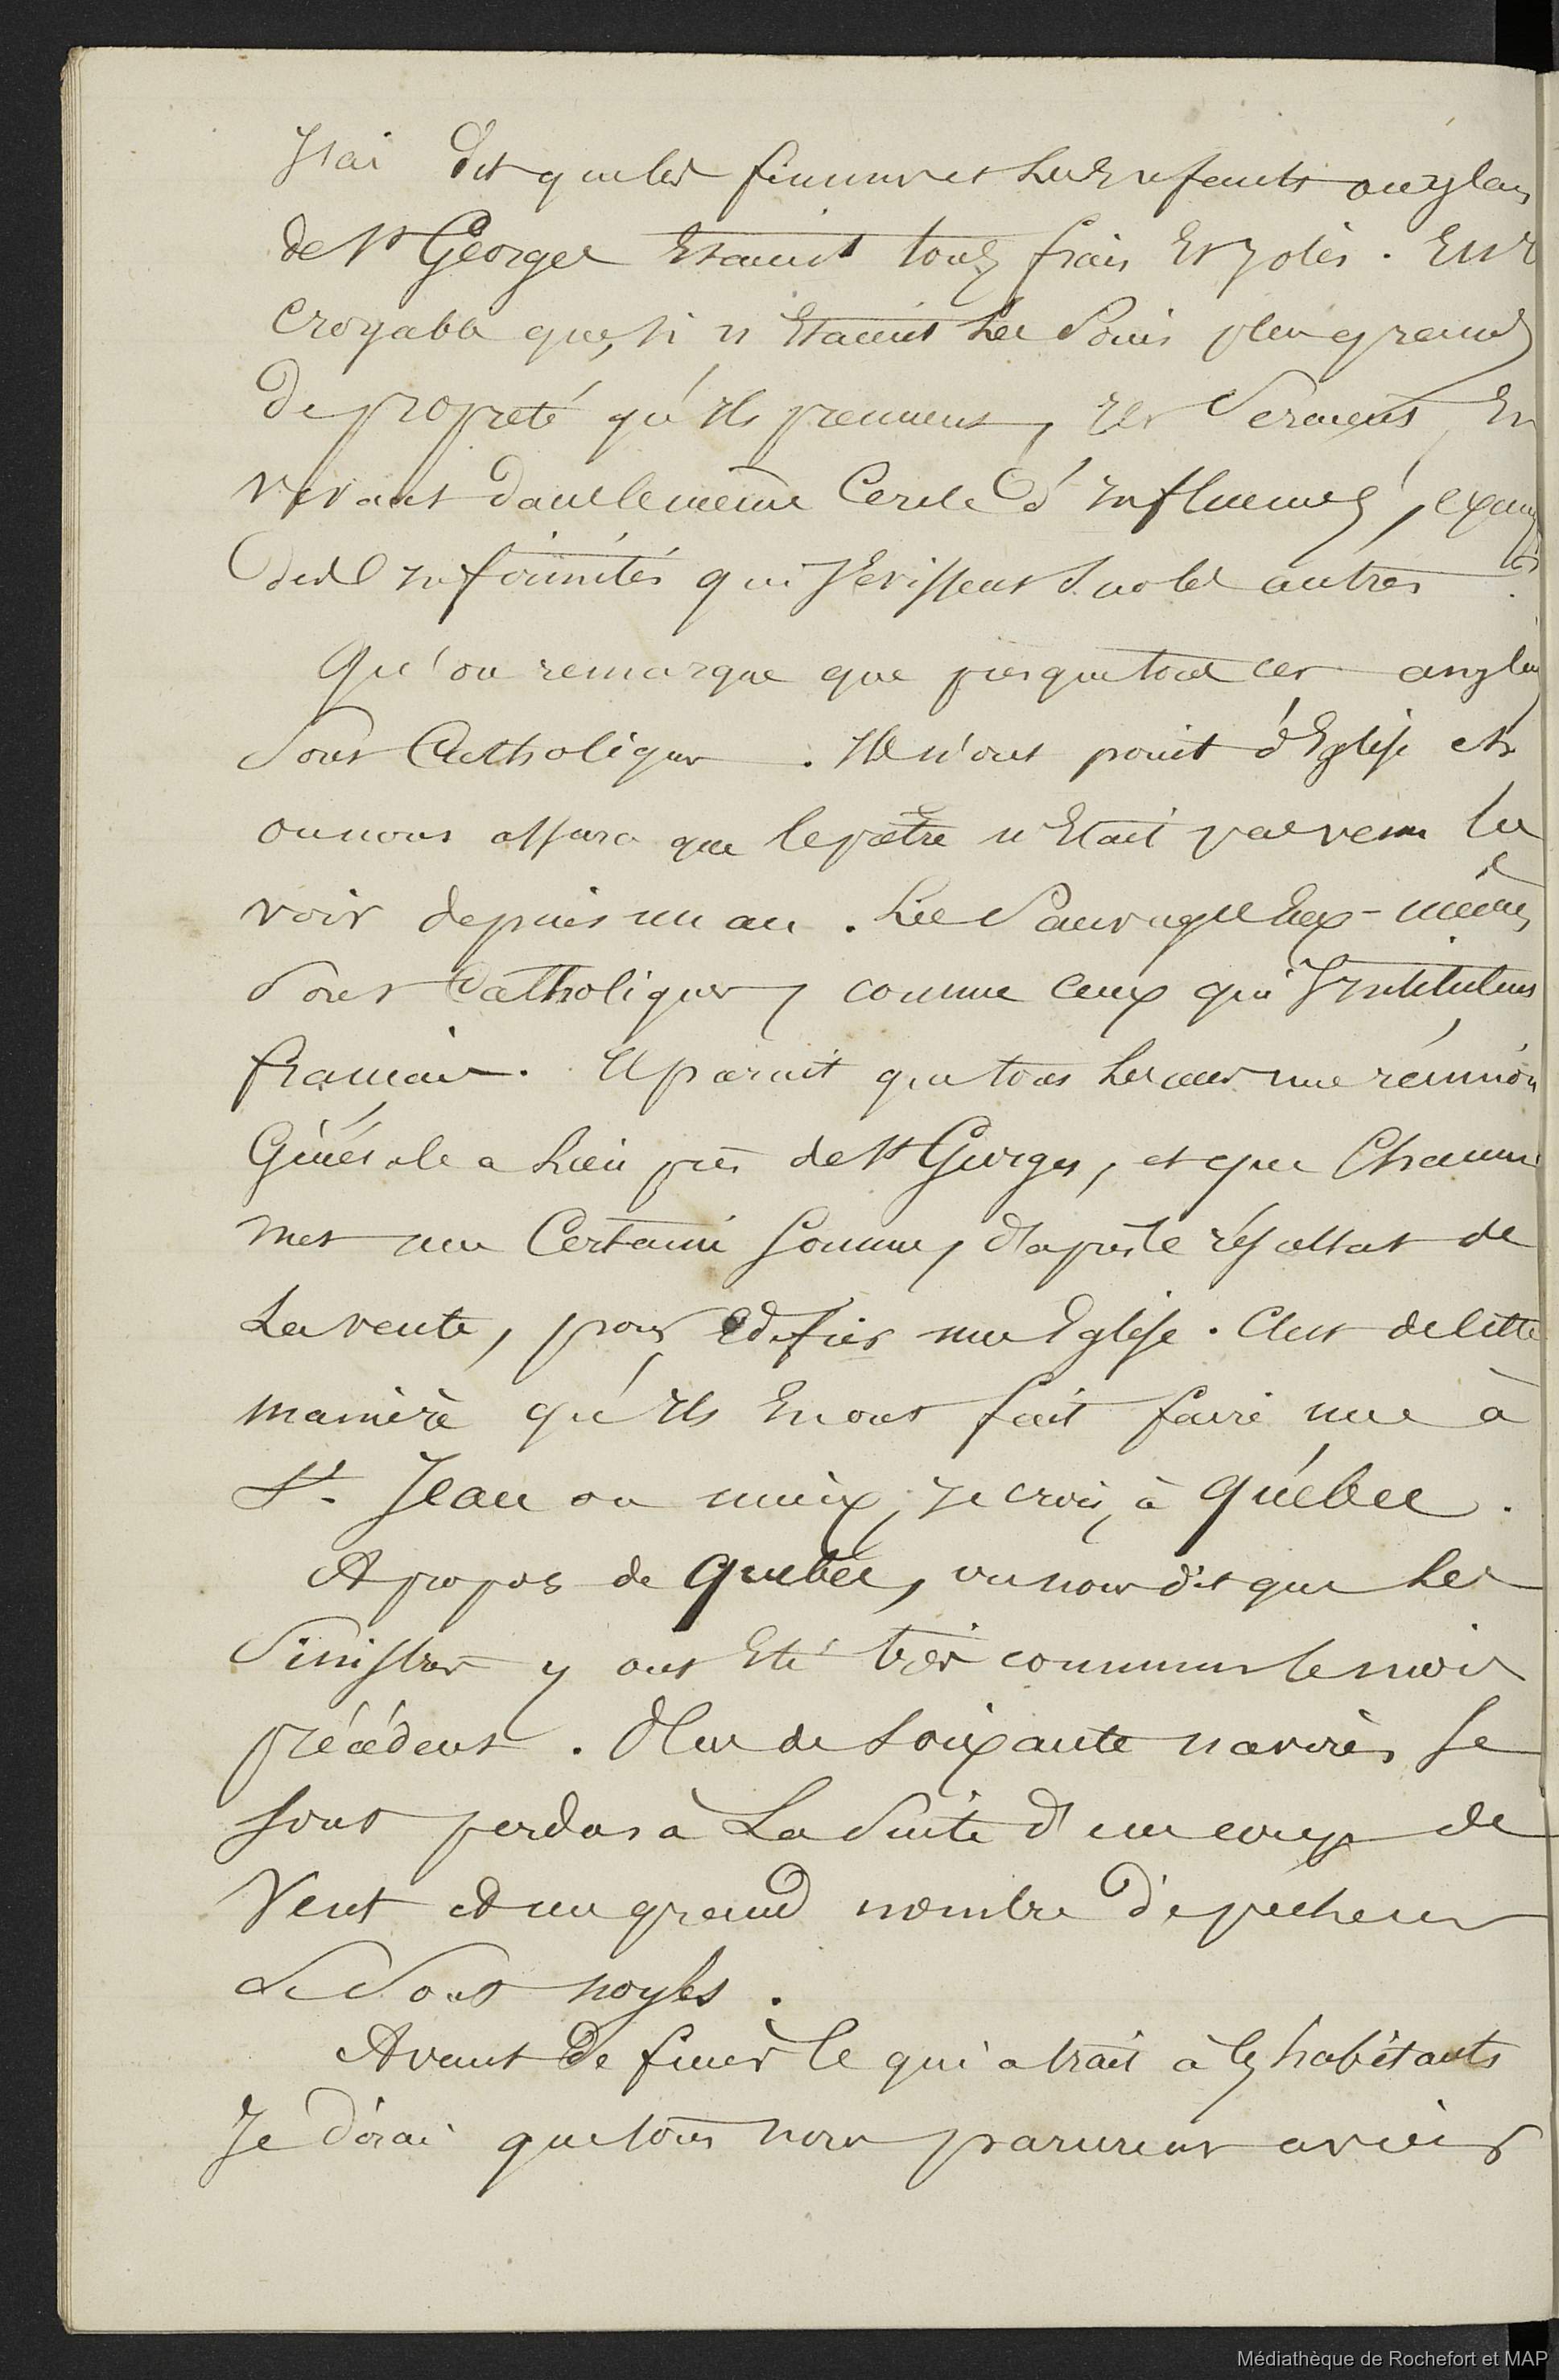 J'ai dit que les femmes et les enfants anglais
de St George étaient tous frais et jolis. Il est
croyable que, si n'étaient les soins plus grands
de propreté qu'ils prennent, ils seraient, en
vivant dans le même cercle d'influences, exempts
des infirmités qui sévissent sur les autres.
Qu'on remarque que presque tous ces anglais
sont Catholiques. Ils n'ont point d'Eglise et
on nous assura que le prêtre n'était pas venu les
voir depuis un an. Les Sauvages eux-mêmes
sont Catholiques, comme ceux qui s'intitulent
français. Il parait que tous les ans une réunion
Générale a lieu près de St Georges, et que Chacun
met une Certaine somme, d'après le résultat de
la vente, pour édifier une Eglise. C'est de cette
manière qu'ils en ont fait faire une à
St. Jean ou mieux, je crois, à Québec.
A propos de Quebec, on nous dit que les
Sinistres y ont été très communs le mois
précédent. Plus de soixante navires se
sont perdus à La Suite d'un coup de
Vent et un grand nombre de pêcheurs
se sont noyés.
Avant de finir ce qui a trait à ces habitants
Je dirai que tous nous parurent avoir